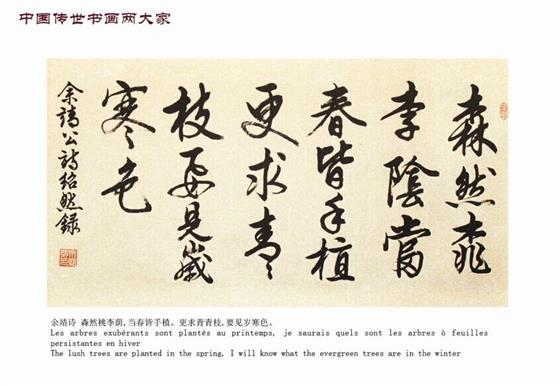 中国传世书画两大家
森然桃
李陰當
春皆手植
更求青々
枝要見歲
寒色
余靖公詩紹然錄
余靖诗 森然桃李荫,当春皆手植。更求青青枝,要见岁寒色。
Les arbres exubérants sont plantés au printemps, je saurais quels sont les arbres à feuilles
persistantes en hiver
The lush trees are planted in the spring, I will know what the evergreen trees are in the winter